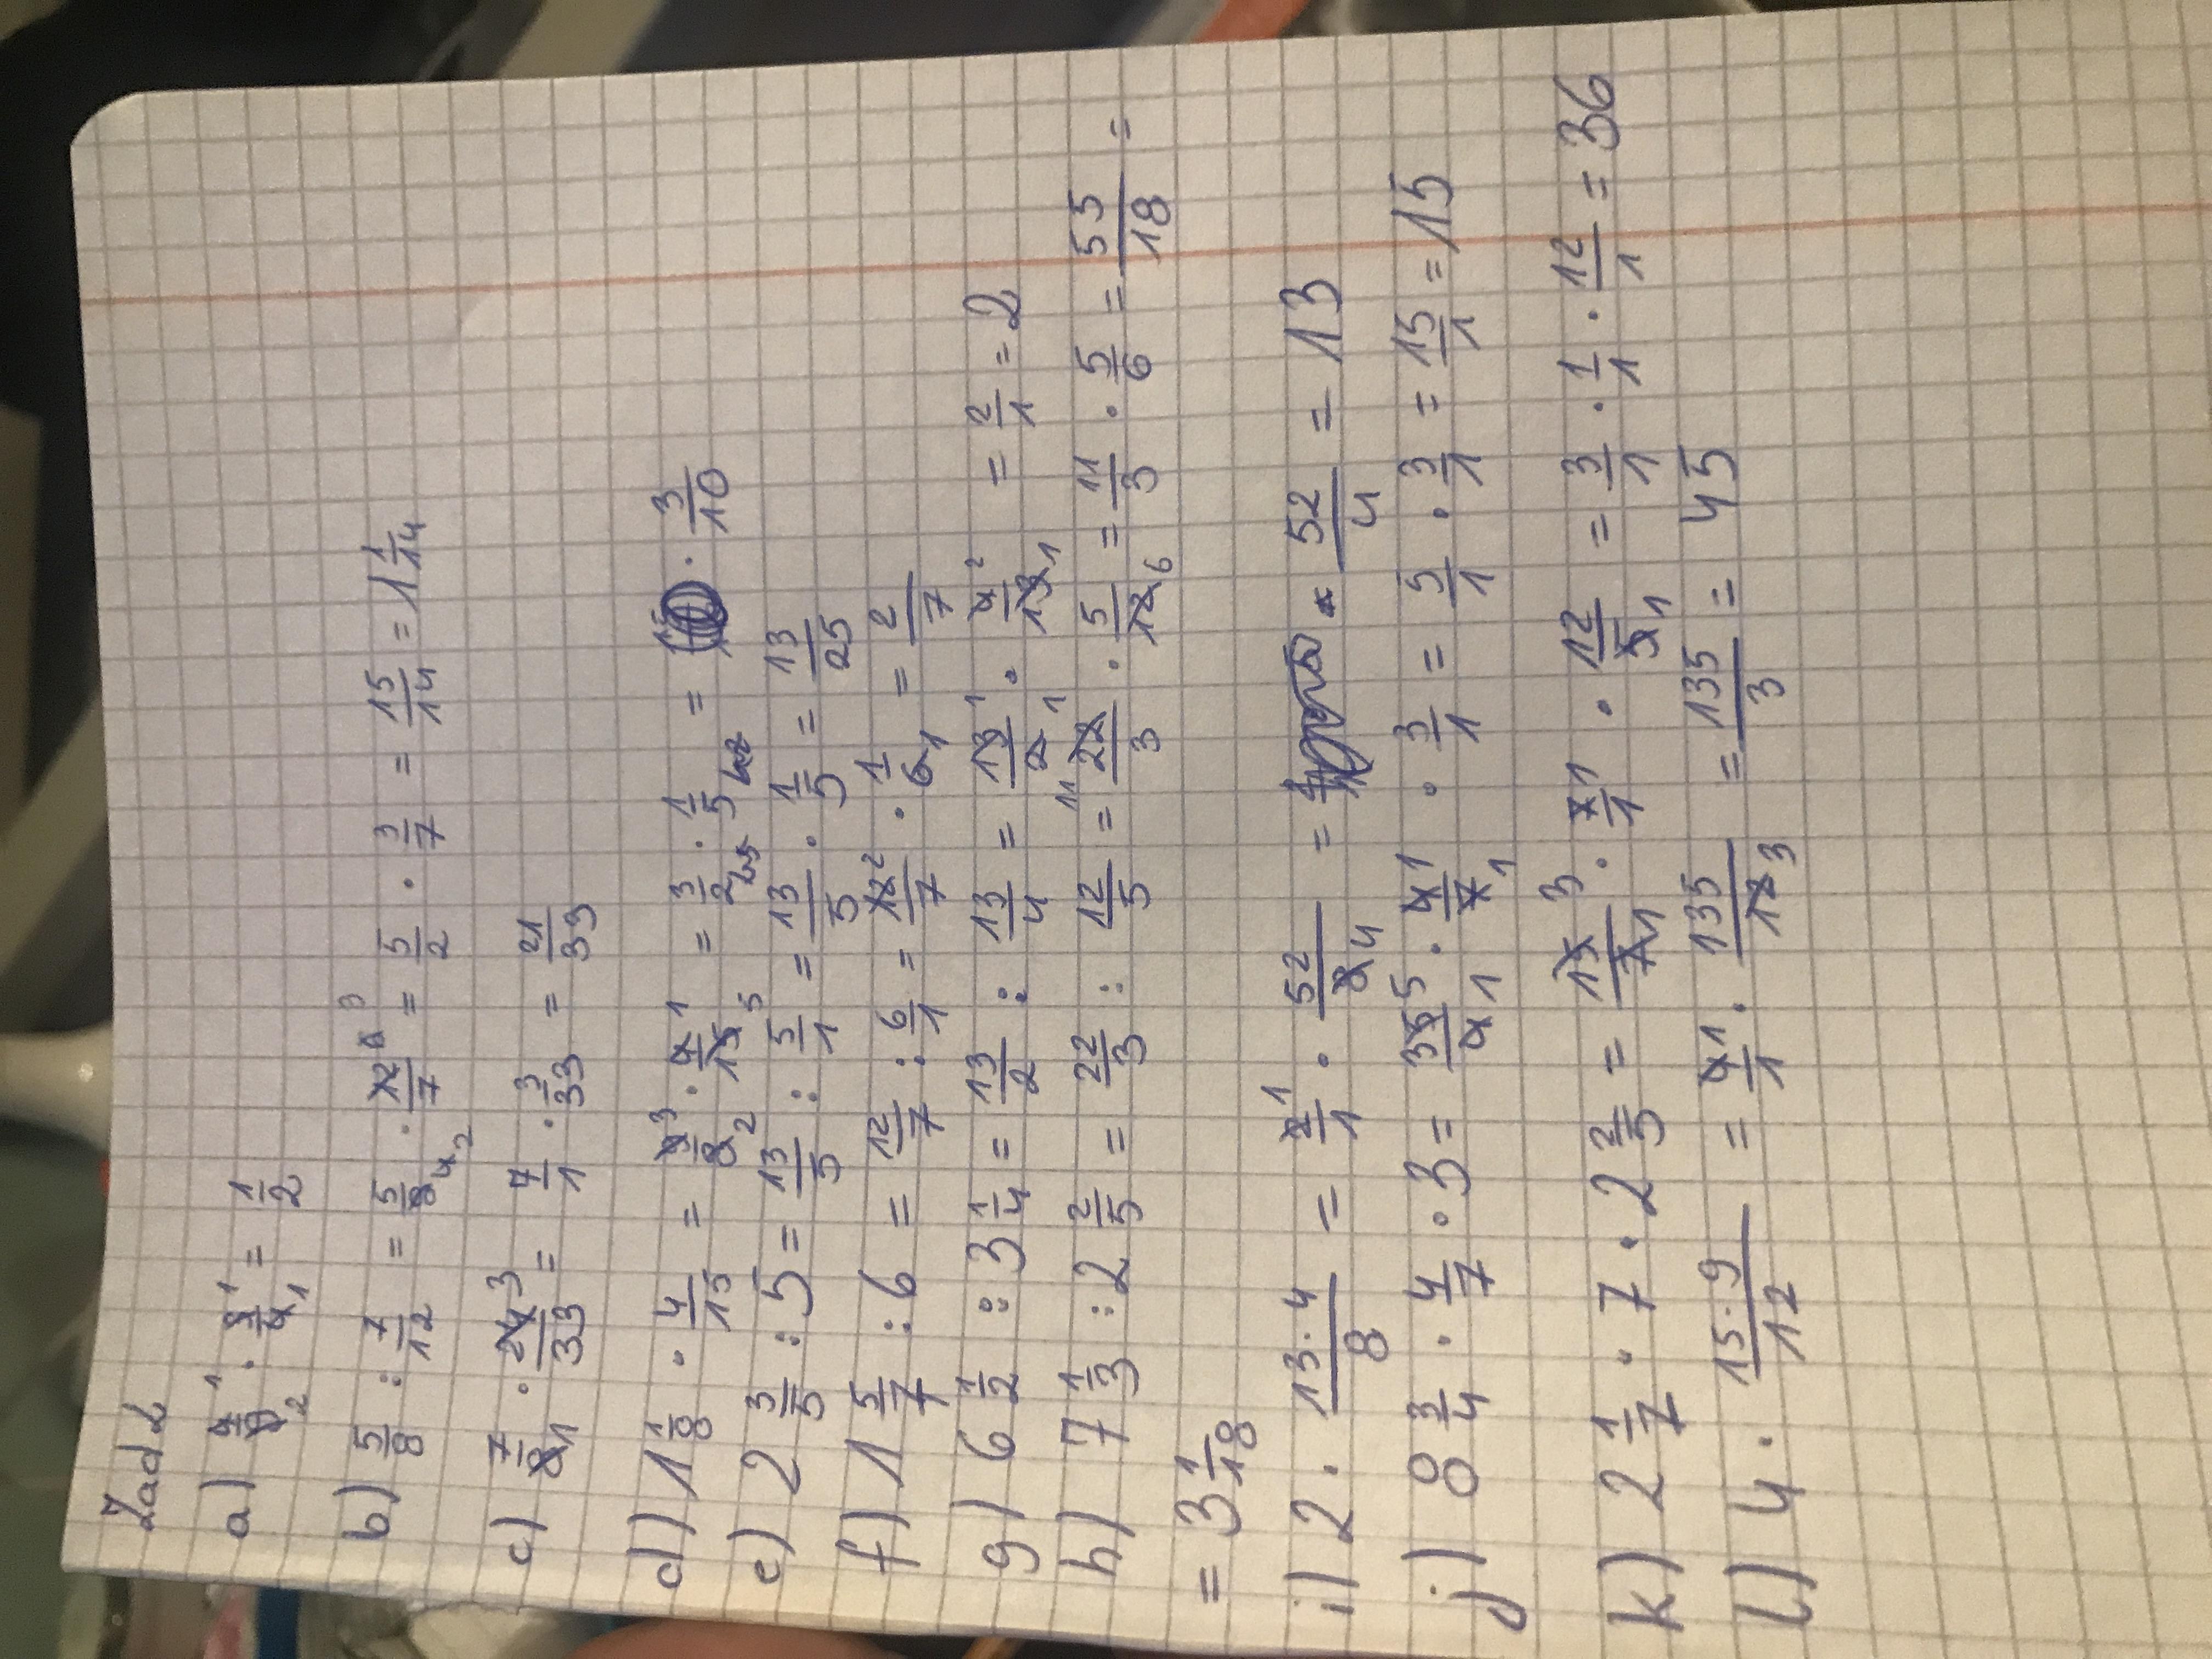 Zad 2
a) 4/8 1 2 · 4/4 1 1 = 1/2
b) 5/8 : 7/12 = 5/8 4 2 · 12/7 6 3 = 5/2 · 3/7 = 15/14 = 1 1/14
c) 7/8 1 · 24/33 3 = 7/1 · 3/33 = 21/33
d) 1 1/8 · 4/15 = 9/8 3 2 · 4/15 1 5 = 3/2 · 1/5 = · 3/10
e) 2 3/5 : 5 = 13/5 : 5/1 = 13/5 · 1/5 = 13/25
f) 1 5/7 : 6 = 12/7 : 6/1 = 12/7 2 · 1/6 1 = 2/7
g) 6 1/2 : 3 1/4 = 13/2 : 13/4 = 13/2 1 1 · 4/13 2 1 = 2/1 = 2
h) 7 1/3 : 2 2/5 = 22/3 : 12/5 = 11 22/3 · 5/12 6 = 11/3 · 5/6 = 55/18 =
= 3 1/18
i) 2 · 13·4/8 = 2/1 1 · 52/8 4 = 52/4 = 13
j) 8 3/4 · 4/7 · 3 = 35/4 5 1 · 4/7 1 1 · 3/1 = 5/1 · 3/1 = 15/1 = 15
k) 2 1/7 · 7 · 2 2/5 = 15/7 3 1 · 7/1 1 · 12/5 1 = 3/1 · 1/1 · 12/1 = 36
l) 4 · 15·9/12 = 4/1 1 · 135/12 3 = 135/3 = 45